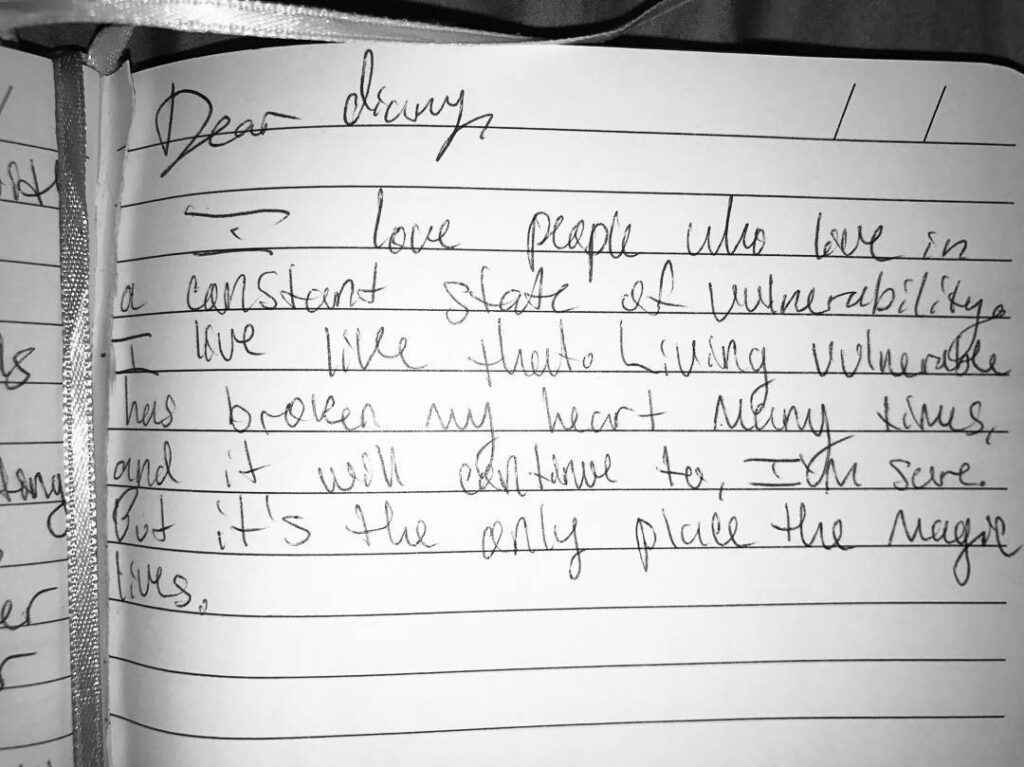 Dear diary, / /
I love people who love in
a constant state of vulnerability.
I love like that. Living vulnerable
has broken my heart many times,
and it will continue to, I'm sure.
But it's the only place the magic
lives.